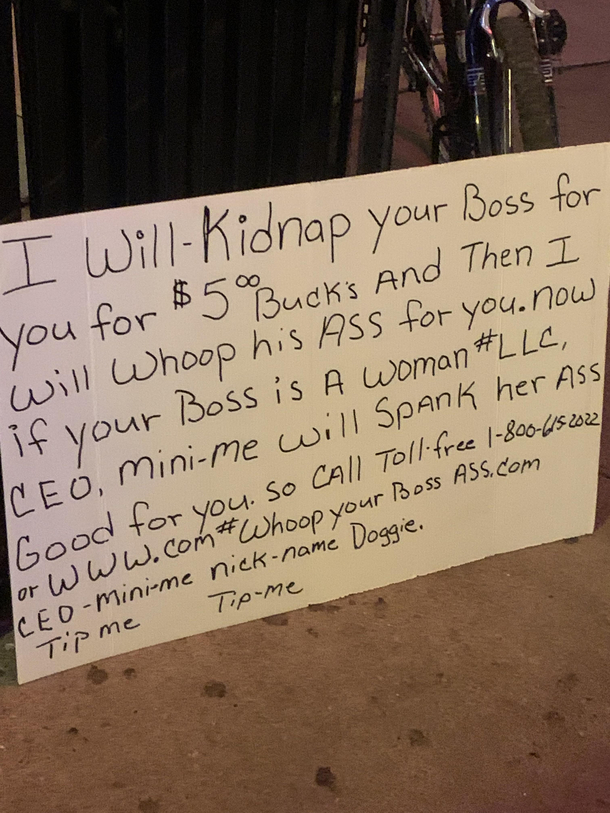 I Will-Kidnap your Boss for
you for $5⁰⁰ Buck's And Then I
will whoop his ASS for you. now
if your Boss is A woman #LLC,
CEO, mini-me will Spank her Ass
Good for you. So CAll Toll-free 1-800-615-2022
or WWW.com#Whoop your Boss ASS.com
CEO-mini-me nick-name Doggie.
Tip me Tip-me